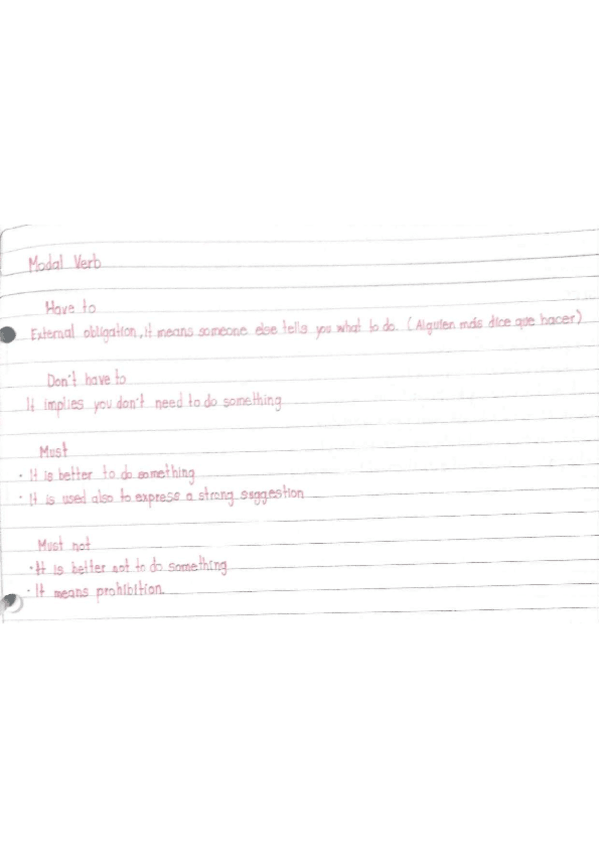 Modal Verb
Have to
External obligation, it means someone else tells you what to do. (Alguien más dice que hacer)
Don't have to
It implies you don't need to do something
Must
· It is better to do something
· It is used also to express a strong suggestion
Must not
· It is better not to do something
· It means prohibition.